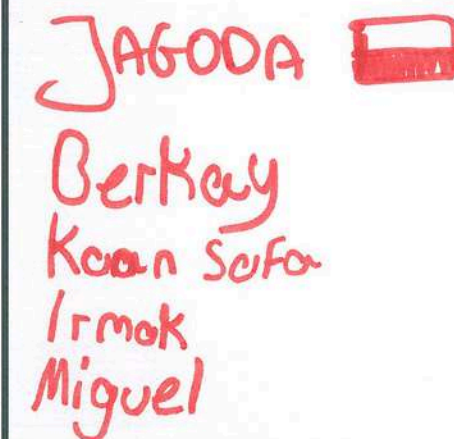 JAGODA
Berkay
Kaan Safa
Irmak
Miguel